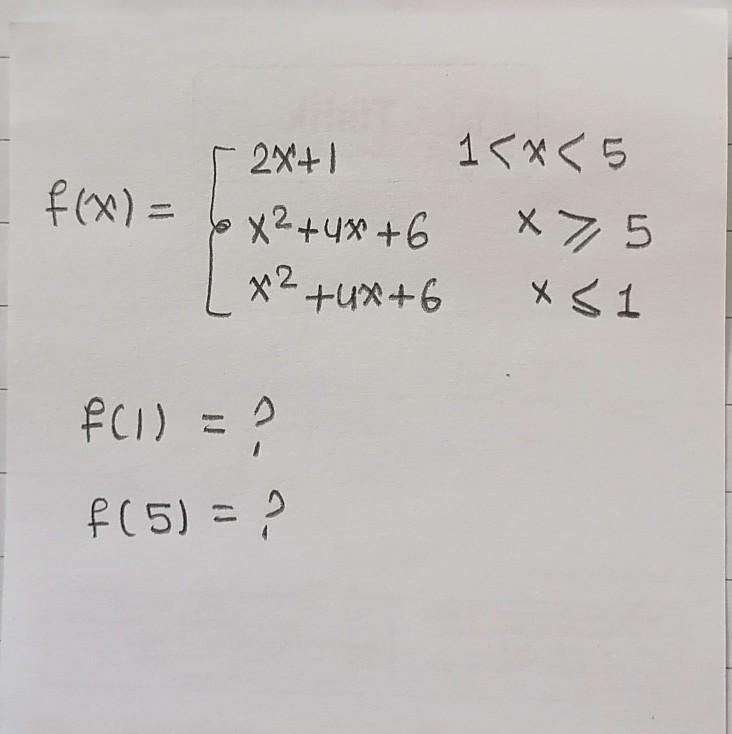 f(x) = { 2x+1 1<x<5
x²+4x+6 x ⩾ 5
x²+4x+6 x ⩽ 1
f(1) = ?
f(5) = ?